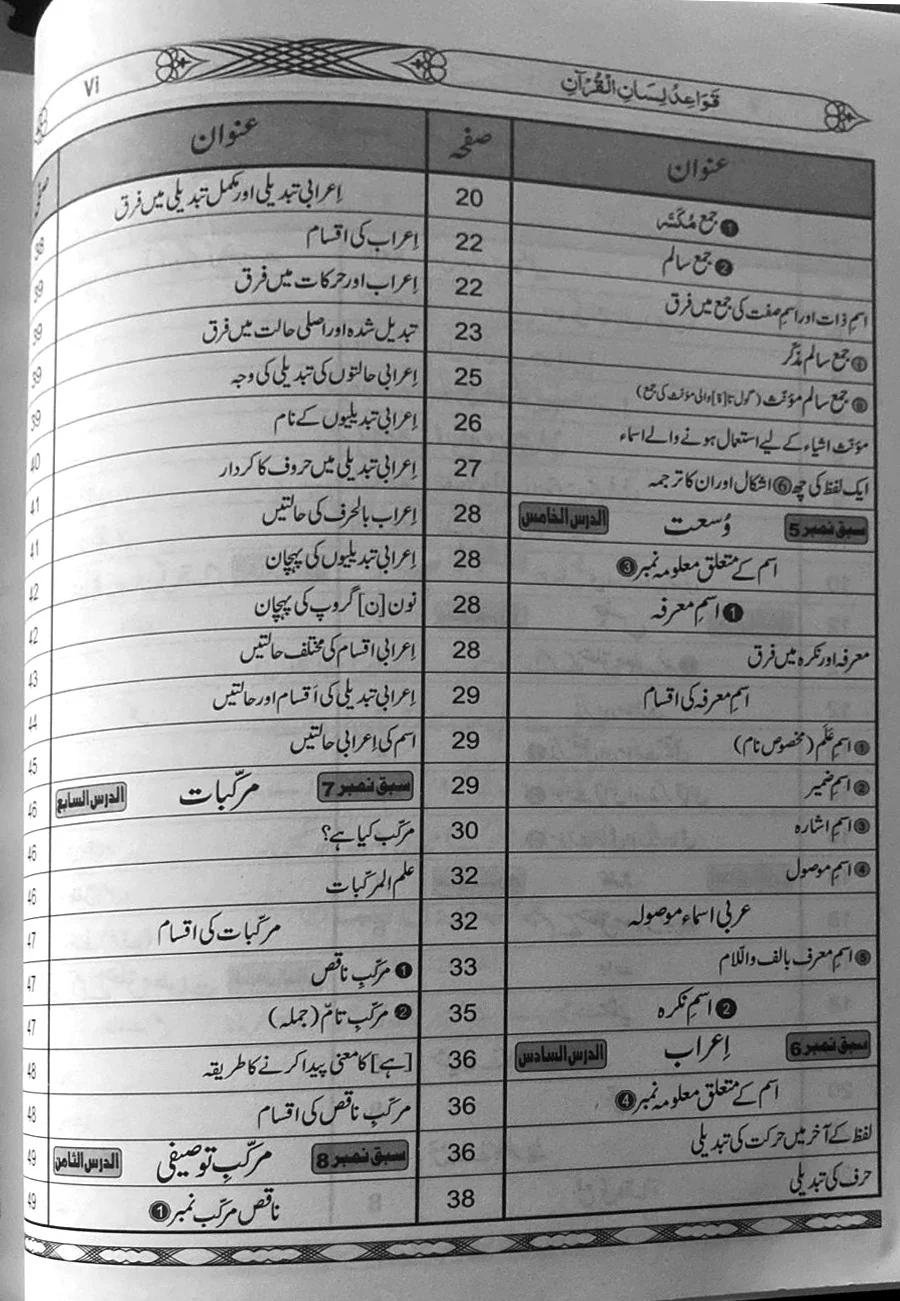 قَوَاعِدُ لِسَانِ الْقُرْآنِ
vi
عنوان صفحہ
❶ جمع مُکَسَّر 20
❷ جمع سالم 22
اسمِ ذات اور اسمِ صفت کی جمع میں فرق 22
❶ جمع سالم مذکّر 23
❷ جمع سالم مؤنث (گول تا [ة] والی مؤنث کی جمع) 25
مؤنث اشیاء کے لیے استعمال ہونے والے اسماء 26
ایک لفظ کی چھ ❻ اشکال اور ان کا ترجمہ 27
سبق نمبر 5 وُسعت الدرس الخامس 28
اسم کے متعلق معلومہ نمبر ❸ 28
❶ اسمِ معرفہ 28
معرفہ اور نکرہ میں فرق 28
اسمِ معرفہ کی اقسام 29
❶ اسمِ عَلَم (مخصوص نام) 29
❷ اسمِ ضمیر 29
❸ اسمِ اشارہ 30
❹ اسمِ موصول 32
عربی اسماء موصولہ 32
❺ اسمِ معرف بالف واللّام 33
❷ اسمِ نکرہ 35
سبق نمبر 6 اِعراب الدرس السادس 36
اسم کے متعلق معلومہ نمبر ❹ 36
لفظ کے آخر میں حرکت کی تبدیلی 36
حرف کی تبدیلی 38
عنوان
اِعرابی تبدیلی اور مکمل تبدیلی میں فرق 38
اِعراب کی اقسام 39
اِعراب اور حرکات میں فرق 39
تبدیل شدہ اور اصلی حالت میں فرق 39
اِعرابی حالتوں کی تبدیلی کی وجہ 39
اِعرابی تبدیلیوں کے نام 40
اِعرابی تبدیلی میں حروف کا کردار 41
اِعراب بالحرف کی حالتیں 41
اِعرابی تبدیلیوں کی پہچان 42
نون [ن] گروپ کی پہچان 42
اِعرابی اقسام کی مختلف حالتیں 43
اِعرابی تبدیلی کی اَقسام اور حالتیں 44
اسم کی اِعرابی حالتیں 45
سبق نمبر 7 مرکّبات الدرس السابع 46
مرکّب کیا ہے؟ 46
علم المرکّبات 46
مرکّبات کی اقسام 47
❶ مرکّبِ ناقص 47
❷ مرکّبِ تامّ (جملہ) 47
[ہے] کا معنی پیدا کرنے کا طریقہ 48
مرکّبِ ناقص کی اقسام 48
سبق نمبر 8 مرکّبِ توصیفی الدرس الثامن 49
ناقص مرکّب نمبر ❶ 49